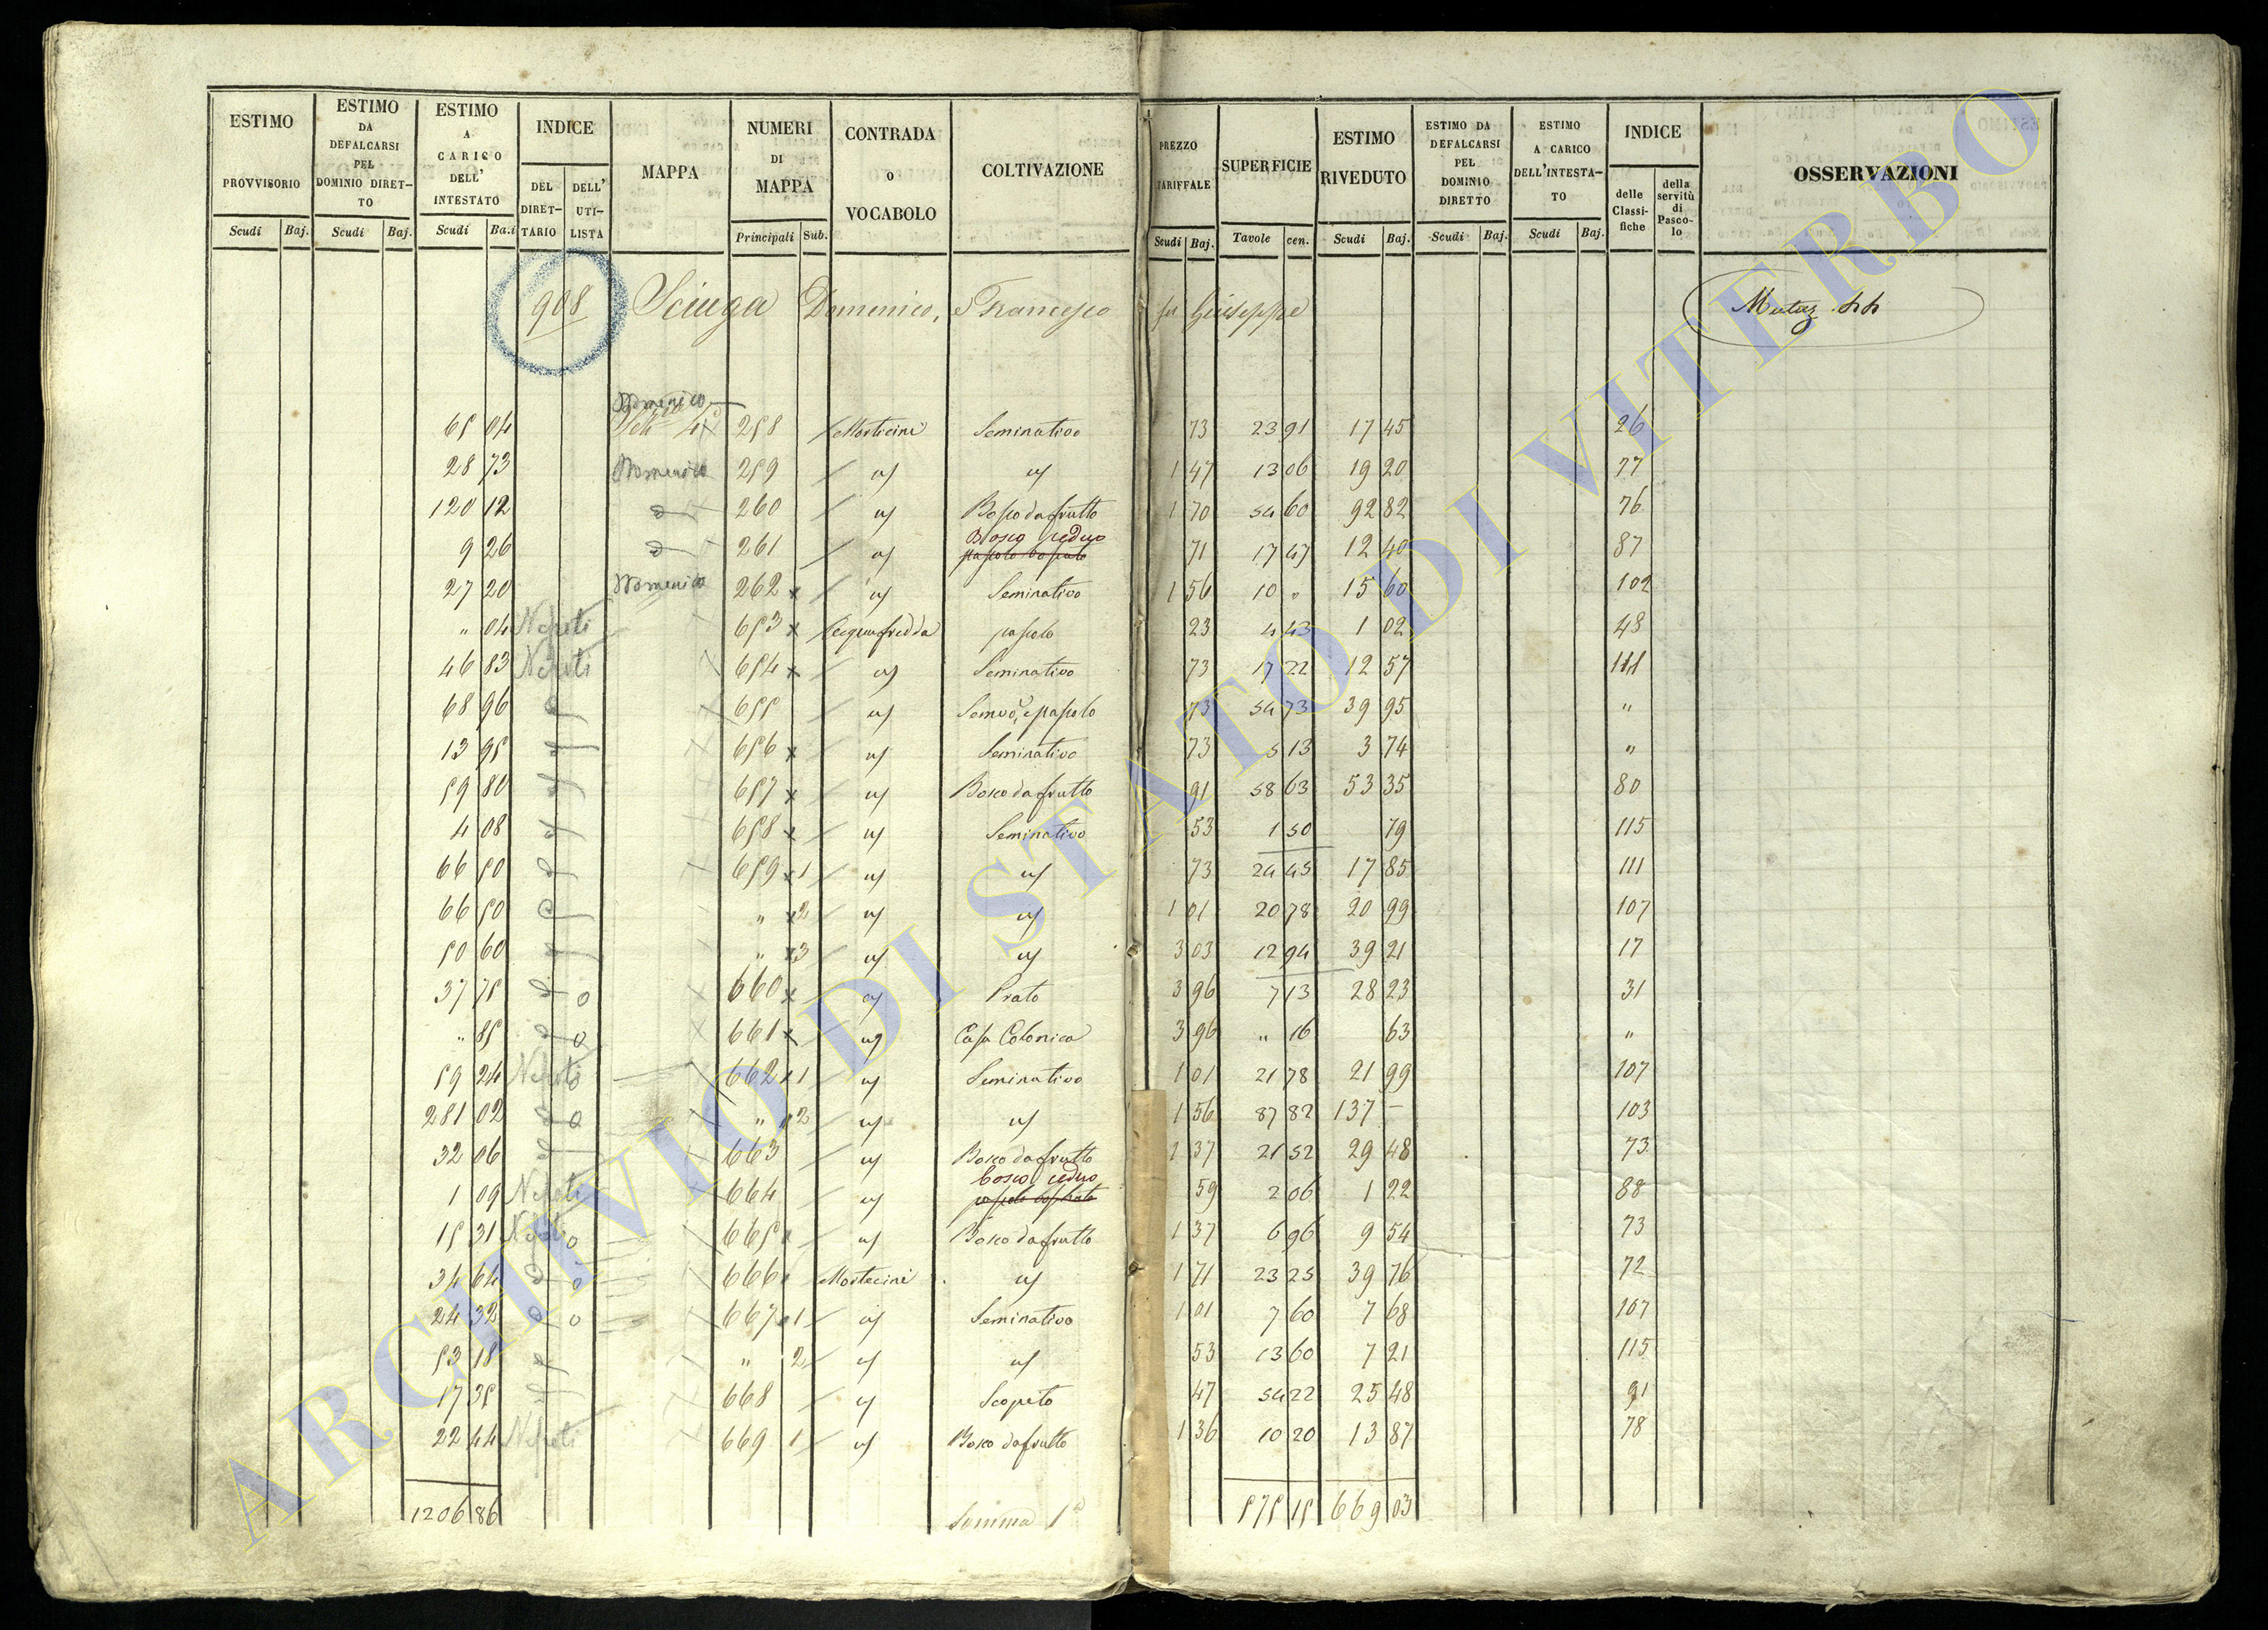 ESTIMO PROVVISORIO Scudi Baj.
ESTIMO DA DEFALCARSI PEL DOMINIO DIRETTO Scudi Baj.
ESTIMO A CARICO DELL' INTESTATO Scudi Ba.i
INDICE DEL DIRETTARIO DELL' UTILISTA
MAPPA
NUMERI DI MAPPA Principali Sub.
CONTRADA o VOCABOLO
COLTIVAZIONE
PREZZO TARIFFALE Scudi Baj.
SUPERFICIE Tavole cen.
ESTIMO RIVEDUTO Scudi Baj.
ESTIMO DA DEFALCARSI PEL DOMINIO DIRETTO Scudi Baj.
ESTIMO A CARICO DELL'INTESTATO Scudi Baj.
INDICE delle Classifiche della servitù di Pascolo
OSSERVAZIONI
908 Sciuga Domenico, e Francesco fu Giuseppe
Domenico
65 04 258 Morticini Seminativo 73 23 91 17 45 26
28 73 Domenico 259 " " 1 47 13 06 19 20 77
120 12 260 " Bosco da frutto 1 70 54 60 92 82 76
Bosco ceduo
9 26 261 " pascolo boscato 71 17 47 12 40 87
27 20 Domenico 262 x " Seminativo 1 56 10 " 15 60 102
" 04 Nepoti 653 x Acquafredda pascolo 23 4 43 1 02 48
46 83 Nepoti 654 x " Seminativo 73 17 22 12 57 111
68 96 655 " Semvo, e pascolo 73 54 73 39 95 "
13 95 656 x " Seminativo 73 5 13 3 74 "
59 80 657 x " Bosco da frutto 91 58 63 53 35 80
4 08 658 x " Seminativo 53 1 50 79 115
66 50 659 x 1 " " 73 24 45 17 85 111
66 50 " x 2 " " 1 01 20 78 20 99 107
50 60 " x 3 " " 3 03 12 94 39 21 17
37 75 660 x " Prato 3 96 7 13 28 23 31
" 85 661 x " Casa Colonica 3 96 " 16 63 "
59 24 Nepoti 662 x 1 " Seminativo 1 01 21 78 21 99 107
281 02 " 2 " " 1 56 87 82 137 – 103
32 06 663 " Bosco da frutto 1 37 21 52 29 48 73
bosco ceduo
1 09 Nepoti 664 " pascolo boscato 59 2 06 1 22 88
15 31 Nepoti 665 " Bosco da frutto 1 37 6 96 9 54 73
34 64 666 Morticini " 1 71 23 25 39 76 72
24 32 667 1 " Seminativo 1 01 7 60 7 68 107
53 18 " 2 " " 53 13 60 7 21 115
17 35 668 " Scopeto 47 54 22 25 48 91
22 44 Nepoti 669 1 " Bosco da frutto 1 36 10 20 13 87 78
1206 86 Somma 1a 575 15 669 03
ARCHIVIO DI STATO DI VITERBO